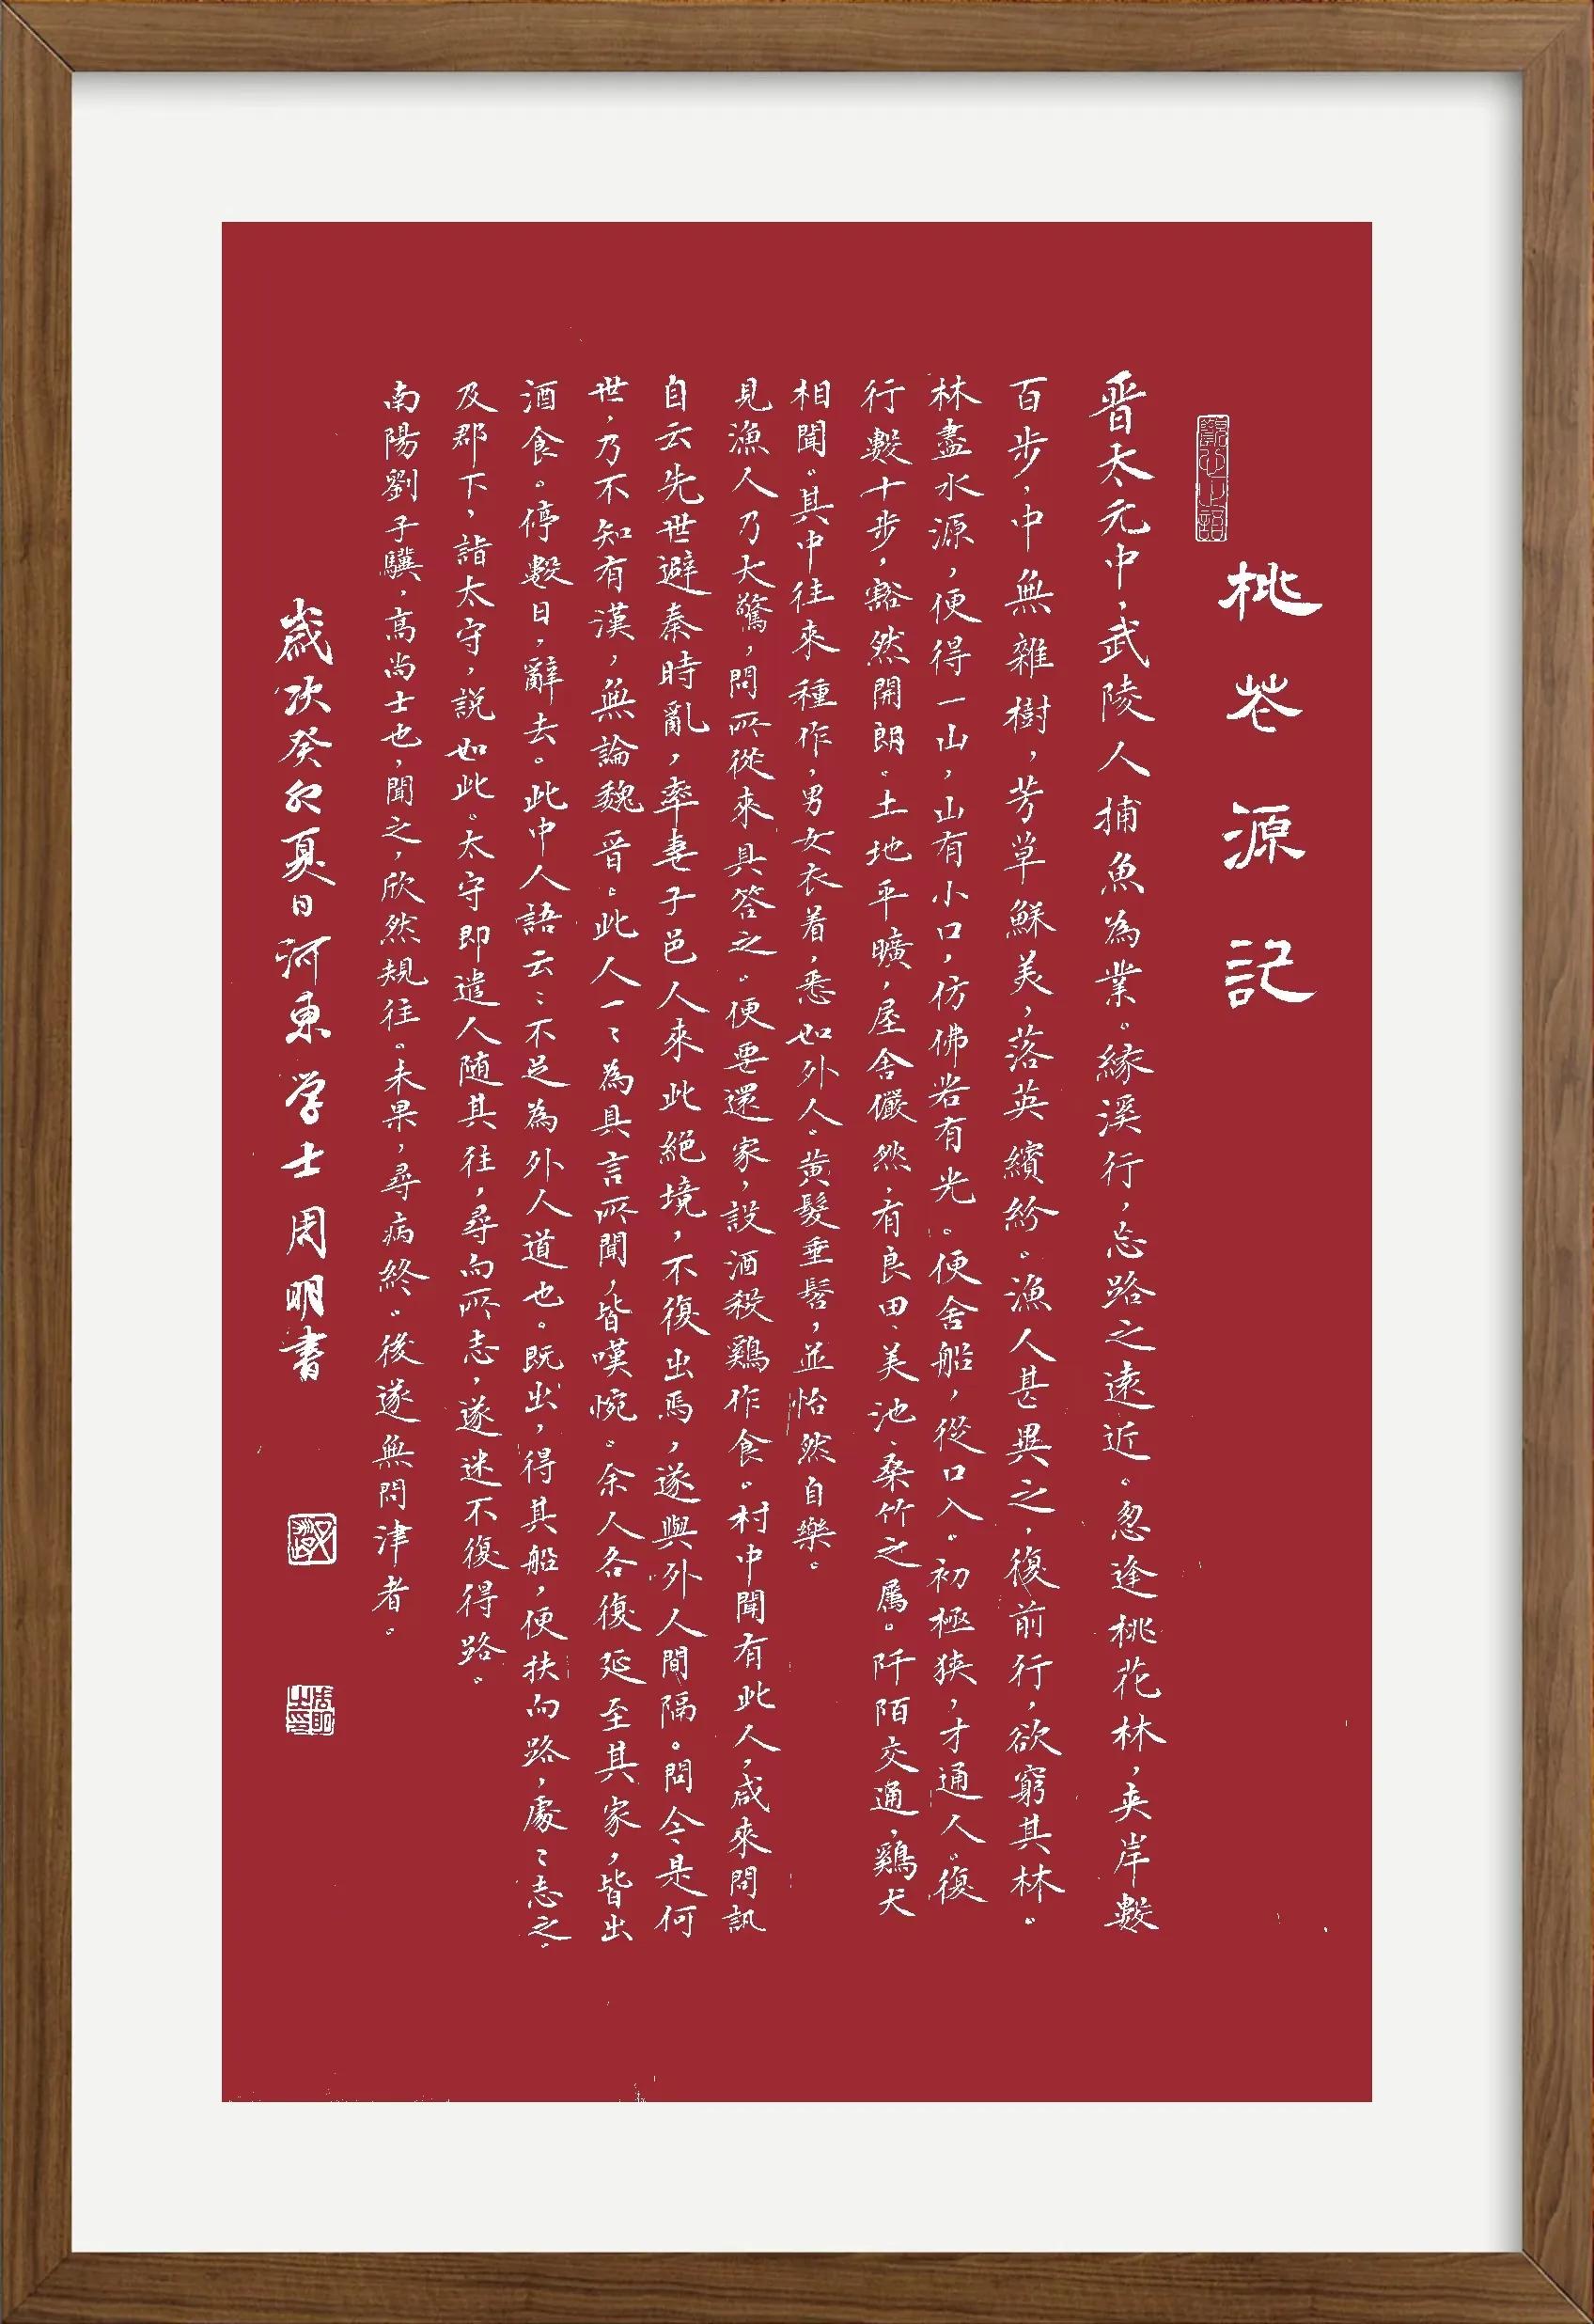 桃花源記
晋太元中，武陵人捕魚為業。緣溪行，忘路之遠近。忽逢桃花林，夾岸數
百步，中無雜樹，芳草鮮美，落英繽紛。漁人甚異之，復前行，欲窮其林。
林盡水源，便得一山，山有小口，仿佛若有光。便舍船，從口入。初極狹，才通人。復
行數十步，豁然開朗。土地平曠，屋舍儼然，有良田、美池、桑竹之屬。阡陌交通，鷄犬
相聞。其中往來種作，男女衣着，悉如外人。黃髮垂髫，並怡然自樂。
見漁人乃大驚，問所從來具答之。便要還家，設酒殺鷄作食。村中聞有此人，咸來問訊
自云先世避秦時亂，率妻子邑人來此絕境，不復出焉，遂與外人間隔。問今是何
世，乃不知有漢，無論魏晋。此人一〻為具言所聞，皆嘆惋。余人各復延至其家，皆出
酒食。停數日，辭去。此中人語云〻不足為外人道也。既出，得其船，便扶向路，處〻志之。
及郡下，詣太守，説如此。太守即遣人随其往，尋向所志，遂迷不復得路。
南陽劉子驥，高尚士也，聞之，欣然規往。未果，尋病終。後遂無問津者。
歲次癸卯夏日河東学士周明書
周明之印